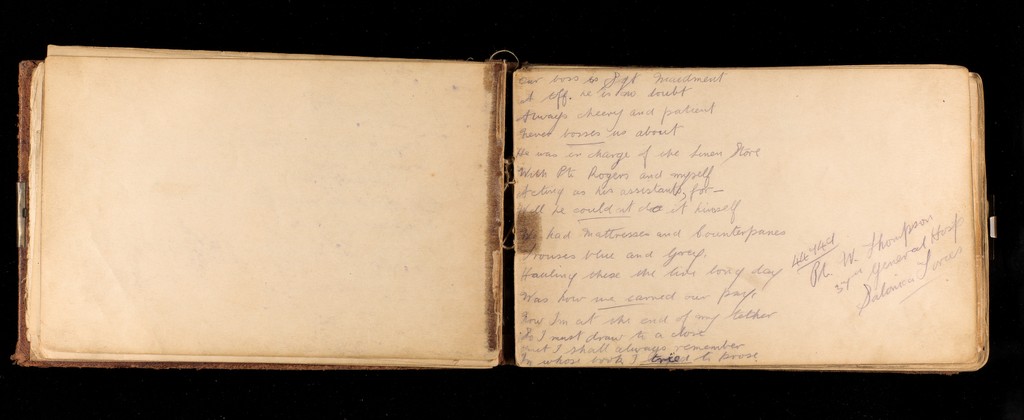 our boss is Sgt
A eff. he is no doubt
Always cheery and patient
Never bosses us about
He was in charge of the Linen Store
With Pte Rogers and myself
Acting as his assistants, for —
Well he couldn't do it himself
We had Mattresses and Counterpanes
Trouses blue and Grey.
Hauling these the live long day
Was how we earned our pay.
Now I'm at the end of my tether
So I must draw to a close
But I shall always remember
In whose book I tried to prose
Pte W. Thompson
General Hosp
Salonica Forces